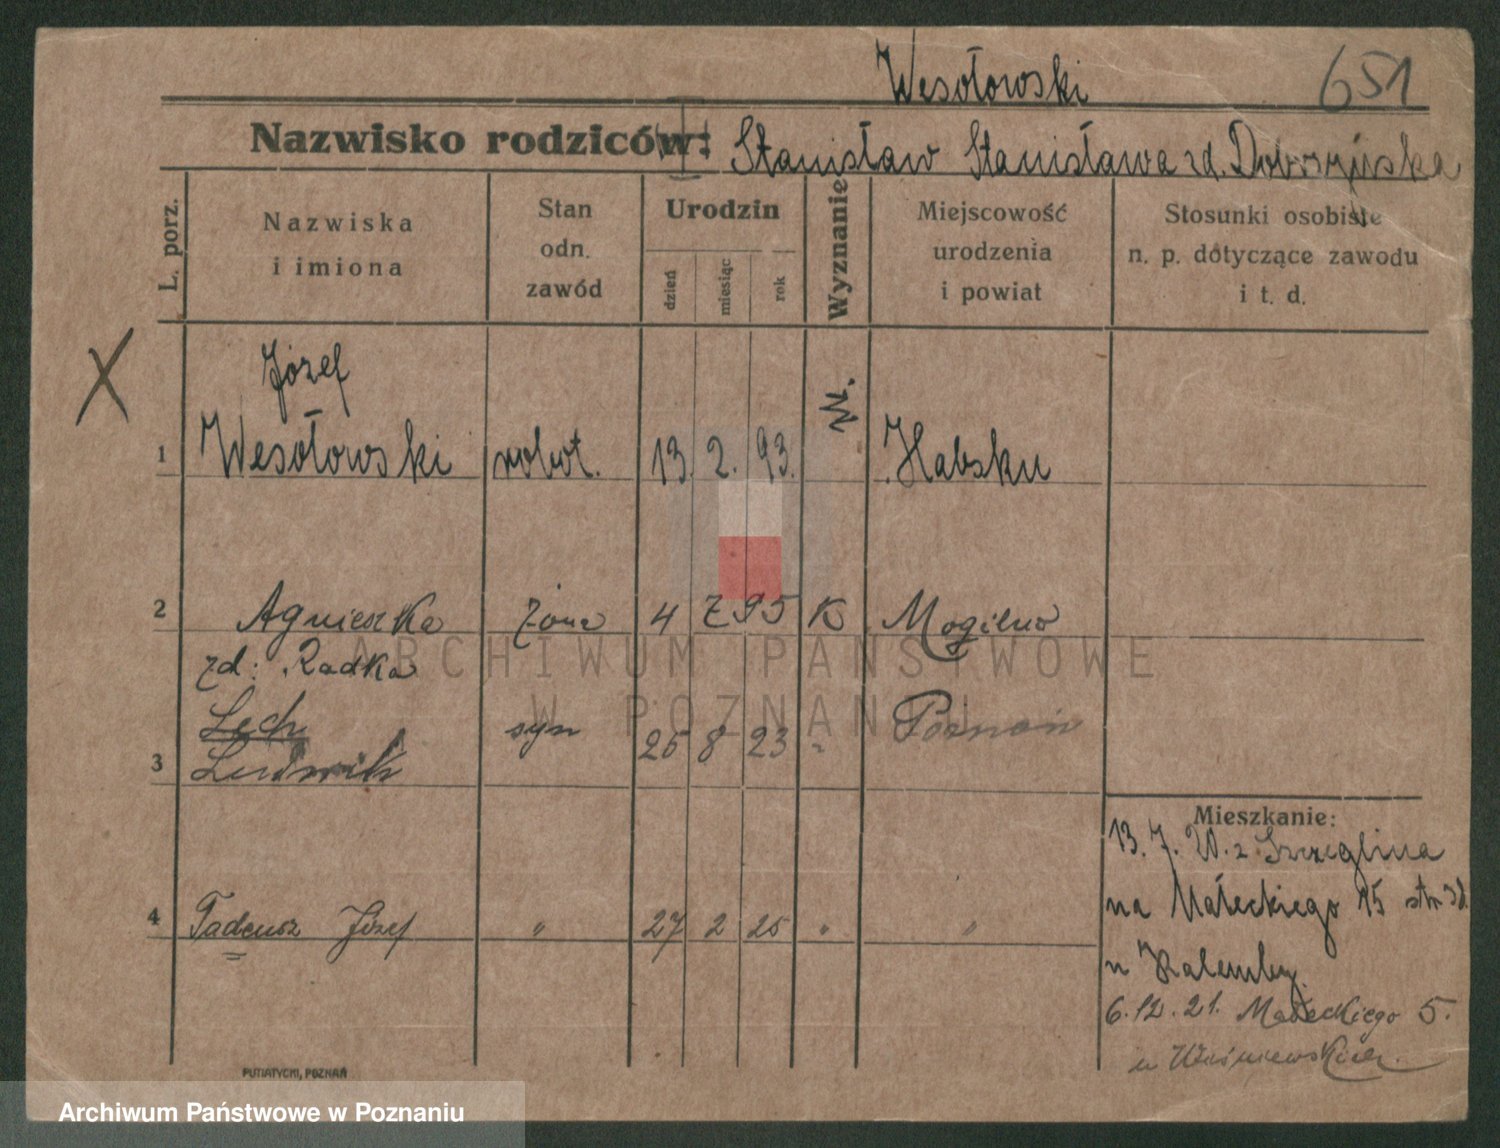 Wesołowski
651
Nazwisko rodziców: Stanisław Stanisława zd. Dobrzyńska
L. porz.
Nazwiska
i imiona
Stan
odn.
zawód
Urodzin
dzień
miesiąc
rok
Wyznanie
Miejscowość
urodzenia
i powiat
Stosunki osobiste
n. p. dotyczące zawodu
i t. d.
X
Józef
1 Wesołowski robot. 13. 2. 93. kt.
2 Agnieszka żona 4 2 95 K Mogilno
zd: Radka
Lech
3 Ludwik syn 25 8 23 " Poznań
4 Tadeusz Józef " 27 2 25 " "
Mieszkanie:
13. 7. W. z Szczeglina
na Małeckiego 15 str.
u Kalemby.
6. 12. 21. Małeckiego 5.
u Wiśniewskiej.
PUTIATYCKI, POZNAŃ
ARCHIWUM PAŃSTWOWE
W POZNANIU
Archiwum Państwowe w Poznaniu